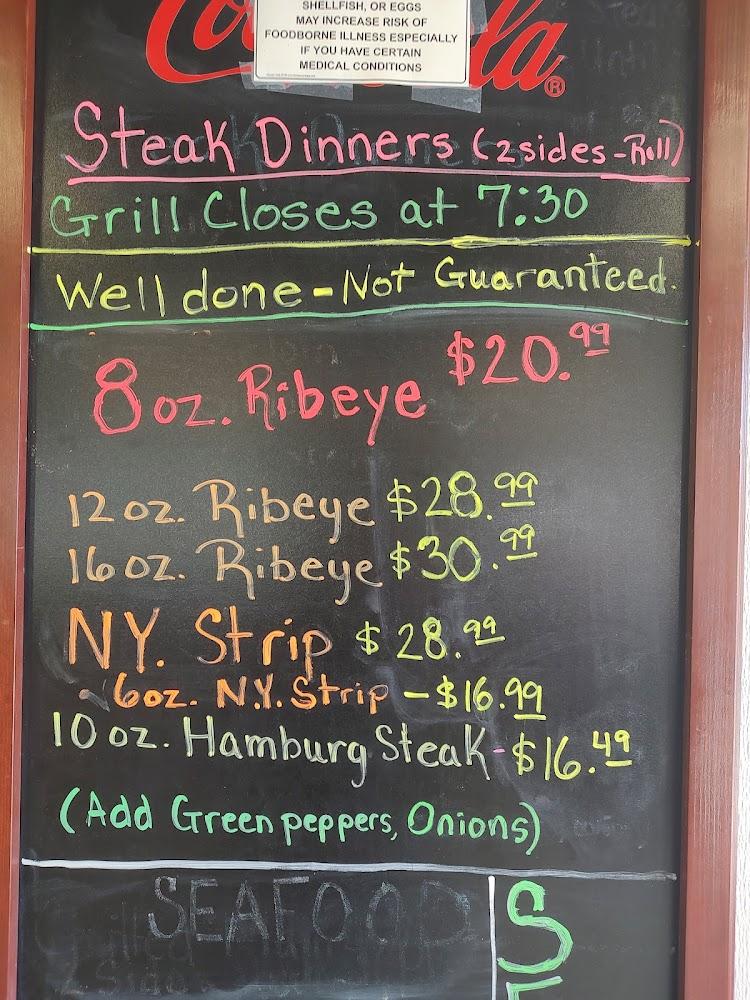 SHELLFISH, OR EGGS
MAY INCREASE RISK OF
FOODBORNE ILLNESS ESPECIALLY
IF YOU HAVE CERTAIN
MEDICAL CONDITIONS
Steak Dinners (2 sides - Roll)
Grill Closes at 7:30
Well done - Not Guaranteed.
8 oz. Ribeye $20.99
12 oz. Ribeye $28.99
16 oz. Ribeye $30.99
NY. Strip $28.99
6oz. N.Y. Strip - $16.99
10 oz. Hamburg Steak - $16.49
(Add Green peppers, Onions)
SEAFOOD
S